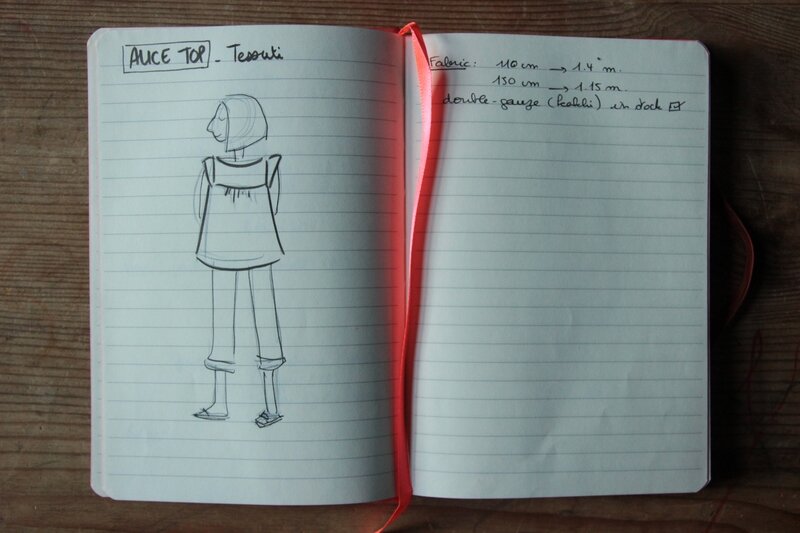 ALICE TOP - Tessuti
Fabric: 110 cm → 1.4 m.
150 cm → 1.15 m.
double-gauze (kakhi) in stock ☑